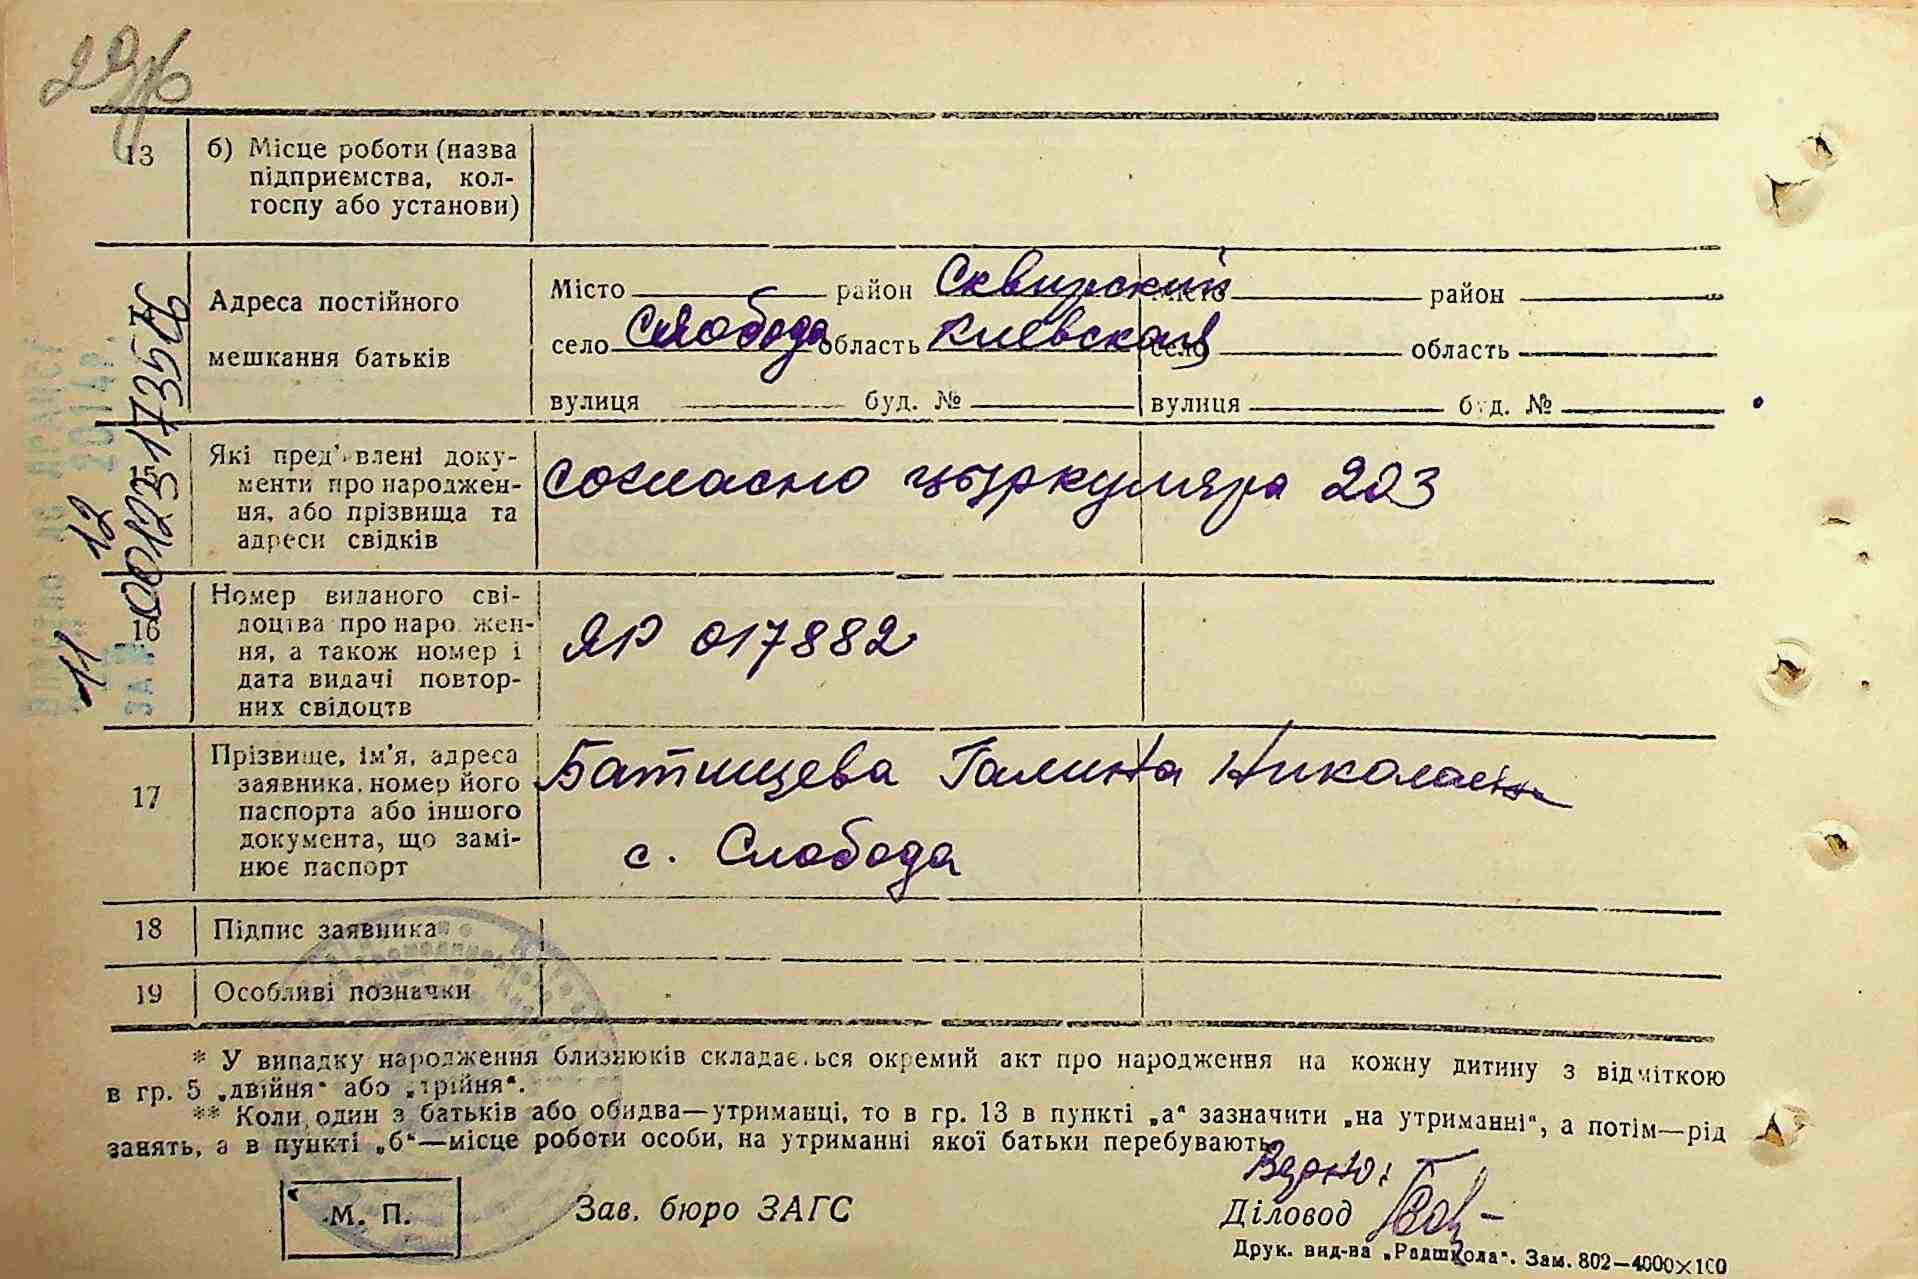 13
б) Місце роботи (назва
підприємства, кол-
госпу або установи)
Адреса постійного
мешкання батьків
Місто район Сквирский Місто район
село Слобода область Киевская село область
вулиця буд. № вулиця буд. №
15
Які пред'влені доку-
менти про народжен-
ня, або прізвища та
адреси свідків
согласно цыркуляра 203
16
Номер виданого сві-
доцтва про наро жен-
ня, а також номер і
дата видачі повтор-
них свідоцтв
ЯР 017882
17
Прізвище, ім'я, адреса
заявника, номер його
паспорта або іншого
документа, що замі-
нює паспорт
Батищева Галина Николаевна
с. Слобода
18 Підпис заявника
19 Особливі позначки
* У випадку народження близнюків складає ься окремий акт про народження на кожну дитину з відміткою
в гр. 5 „двійня“ або „трійня“.
** Коли один з батьків або обидва—утриманці, то в гр. 13 в пункті „а“ зазначити „на утриманні“, а потім—рід
занять, а в пункті „б“—місце роботи особи, на утриманні якої батьки перебувають.
М. П.
Зав. бюро ЗАГС
Діловод
Друк. вид-ва „Радшкола“. Зам. 802—4000×100
11 12
00123173576
2014р.